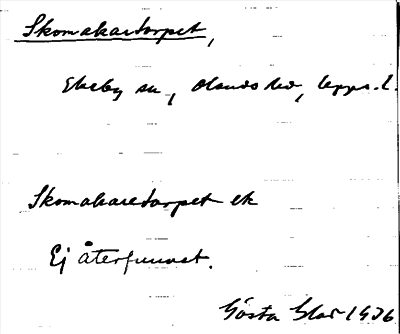 Skomakaretorpet,
Ekeby sn, Olands hd, Upps. l.
Skomakaretorpet ek
Ej återfunnet.
Gösta 1936